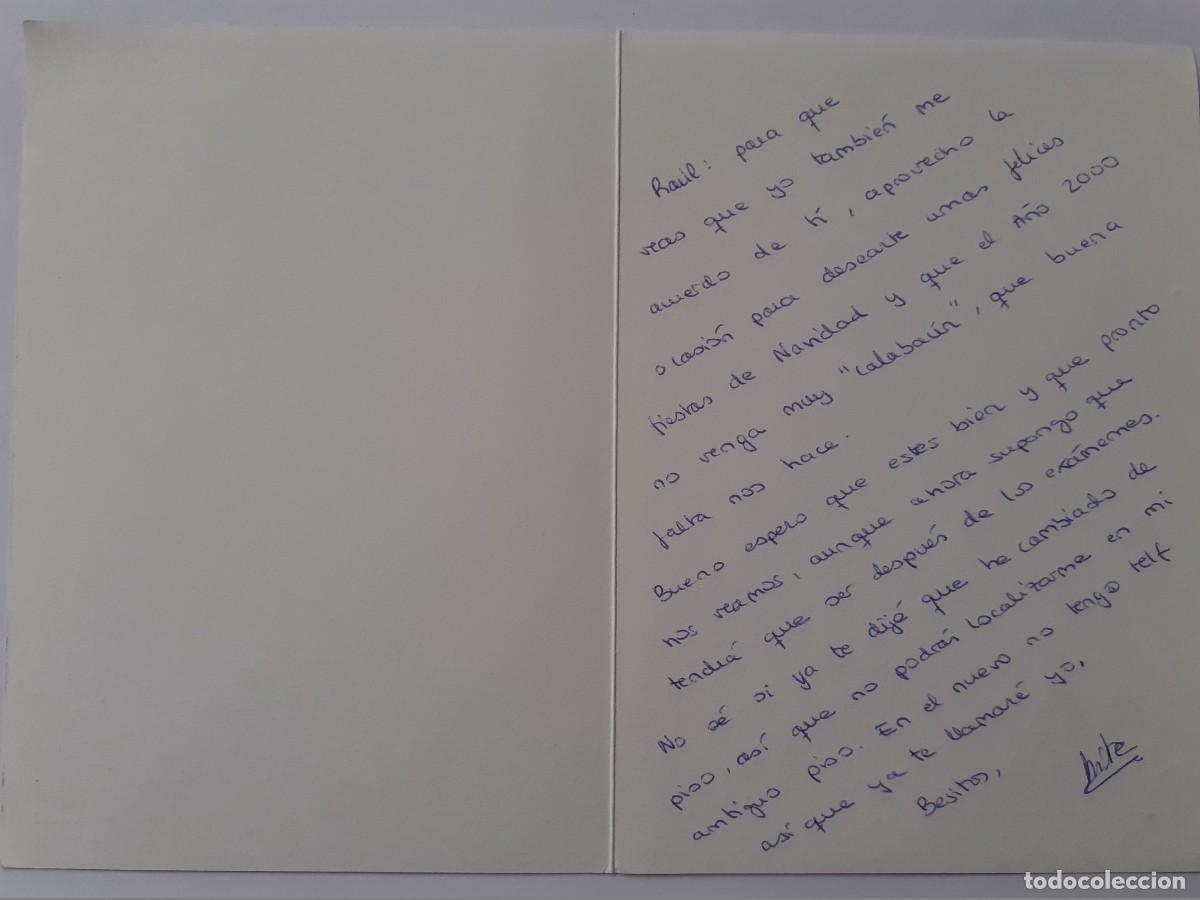 Raúl: para que
veas que yo también me
acuerdo de tí, aprovecho la
ocasión para desearte unas felices
fiestas de Navidad y que el Año 2000
no venga muy "calabacín", que buena
falta nos hace.
Bueno espero que estes bién y que pronto
nos veamos, aunque ahora supongo que
tendrá que ser después de los exámenes.
No sé si ya te dijé que he cambiado de
piso, así que no podrás localizarme en mi
antiguo piso. En el nuevo no tengo telf
así que ya te llamaré yo.
Besitos,
todocoleccion